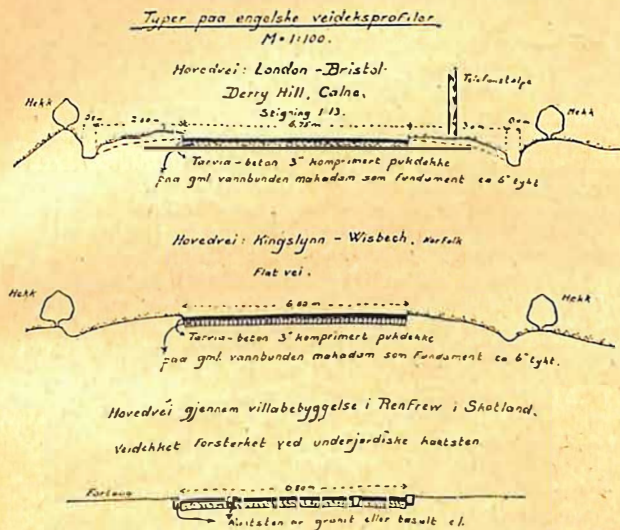 Typer paa engelske veideksprofiler
M = 1:100.
Hovedvei: London - Bristol
Derry Hill, Calne,
Stigning 1:13.
Telefonstolpe
Hekk
Hekk
6.75m
Tarvia-beton 3" komprimert pukdekke
paa gml. vannbunden makadam som Fundament ca 6" tykt
Hovedvei: Kingslynn - Wisbech, Norfolk
Flat vei.
Hekk
Hekk
Tarvia-beton 3" komprimert pukdekke
paa gml. vannbunden makadam som Fundament ca 6" tykt.
Hovedvei gjennem villabebyggelse i Renfrew i Skotland.
Veidekket forsterket ved underjordiske kantsten
Fortaug
Kantsten av granit eller basalt el.